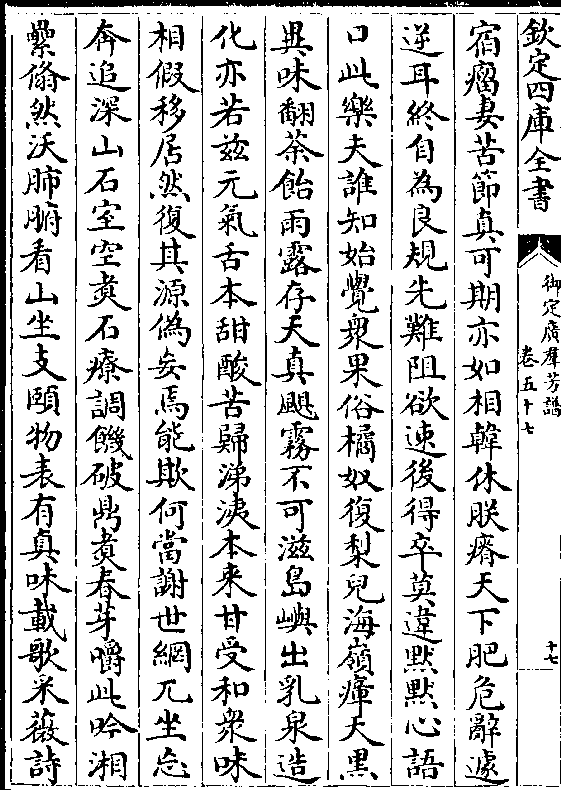 欽定四庫全書
御定廣羣芳譜
卷五十七
十七
宿瘤妻苦節真可期亦如相韓休朕瘠天下肥危辭遽
逆耳終自為良規先難阻欲速後得卒莫違默默心語
口此樂夫誰知始覺衆果俗橘奴復梨兒海嶺瘴天黒
異味翻荼飴雨露存天真颶霧不可滋島嶼出乳泉造
化亦若兹元氣舌本甜酸苦歸涕洟本来甘受和衆味
相假移居然復其源偽妄焉能欺何當謝世網兀坐忘
奔追深山石室空煑石療調饑破鼎煑春芽嚼此吟湘
纍翛然沃肺腑看山坐支頤物表有真味載歌采薇詩